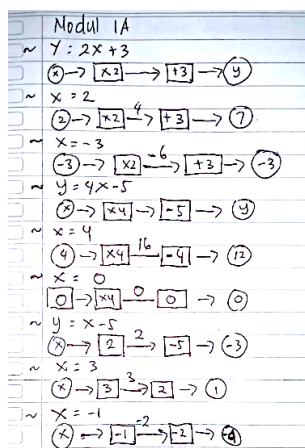 Modul 1A
~ Y = 2x + 3
(x) → [x2] → [+3] → (y)
~ x = 2
(2) → [x2] 4→ [+3] → (7)
~ x = -3
(-3) → [x2] -6→ [+3] → (-3)
~ y = 4x - 5
(x) → [x4] → [-5] → (y)
~ x = 4
(4) → [x4] 16→ [-4] → (12)
~ x = 0
[0] → [x4] 0— [0] → (0)
~ y = x - 5
(x) → [2] 2→ [-5] → (-3)
~ x = 3
(x) → [3] 3→ [2] → (1)
~ x = -1
(x) → [-1] -2→ [-2] →